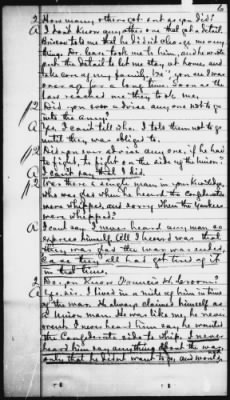 6
2 How many others got out as you did?
A I don't know any other one that got a detail.
Brison told me that he didn't charge me any
thing. Dr. Lear took me to him, and he wrote
out the detail to let me stay at home and
take care of my family, &c. you see I was
over age for a long time. Sooner the
last reached me they took me.
2 Did you ever advise any one not to go
into the army?
A Yes I can't tell who. I told them not to go
until they was obliged to.
2 Did you ever advise any one, if he had
to fight, to fight on the side of the Union?
A I can't say that I did.
2 Was there a single man in your knowledge
who was glad when he heard the Confederates
were whipped, and sorry when the Yankees
were whipped?
A I can't say I never heard any man so
express himself. All I heard was that
they was glad the war was ended,
as they all had got tired of it
in that time.
2 Do you know Francis H. Croom?
A Yes sir. I lived in a mile of him in time
of the war. He always claimed himself as
a Union man. He was like me, he never
went. I never heard him say he wanted
the Confederate side to whip. I never
heard him say anything about the war
only that he didn't want to go, and would